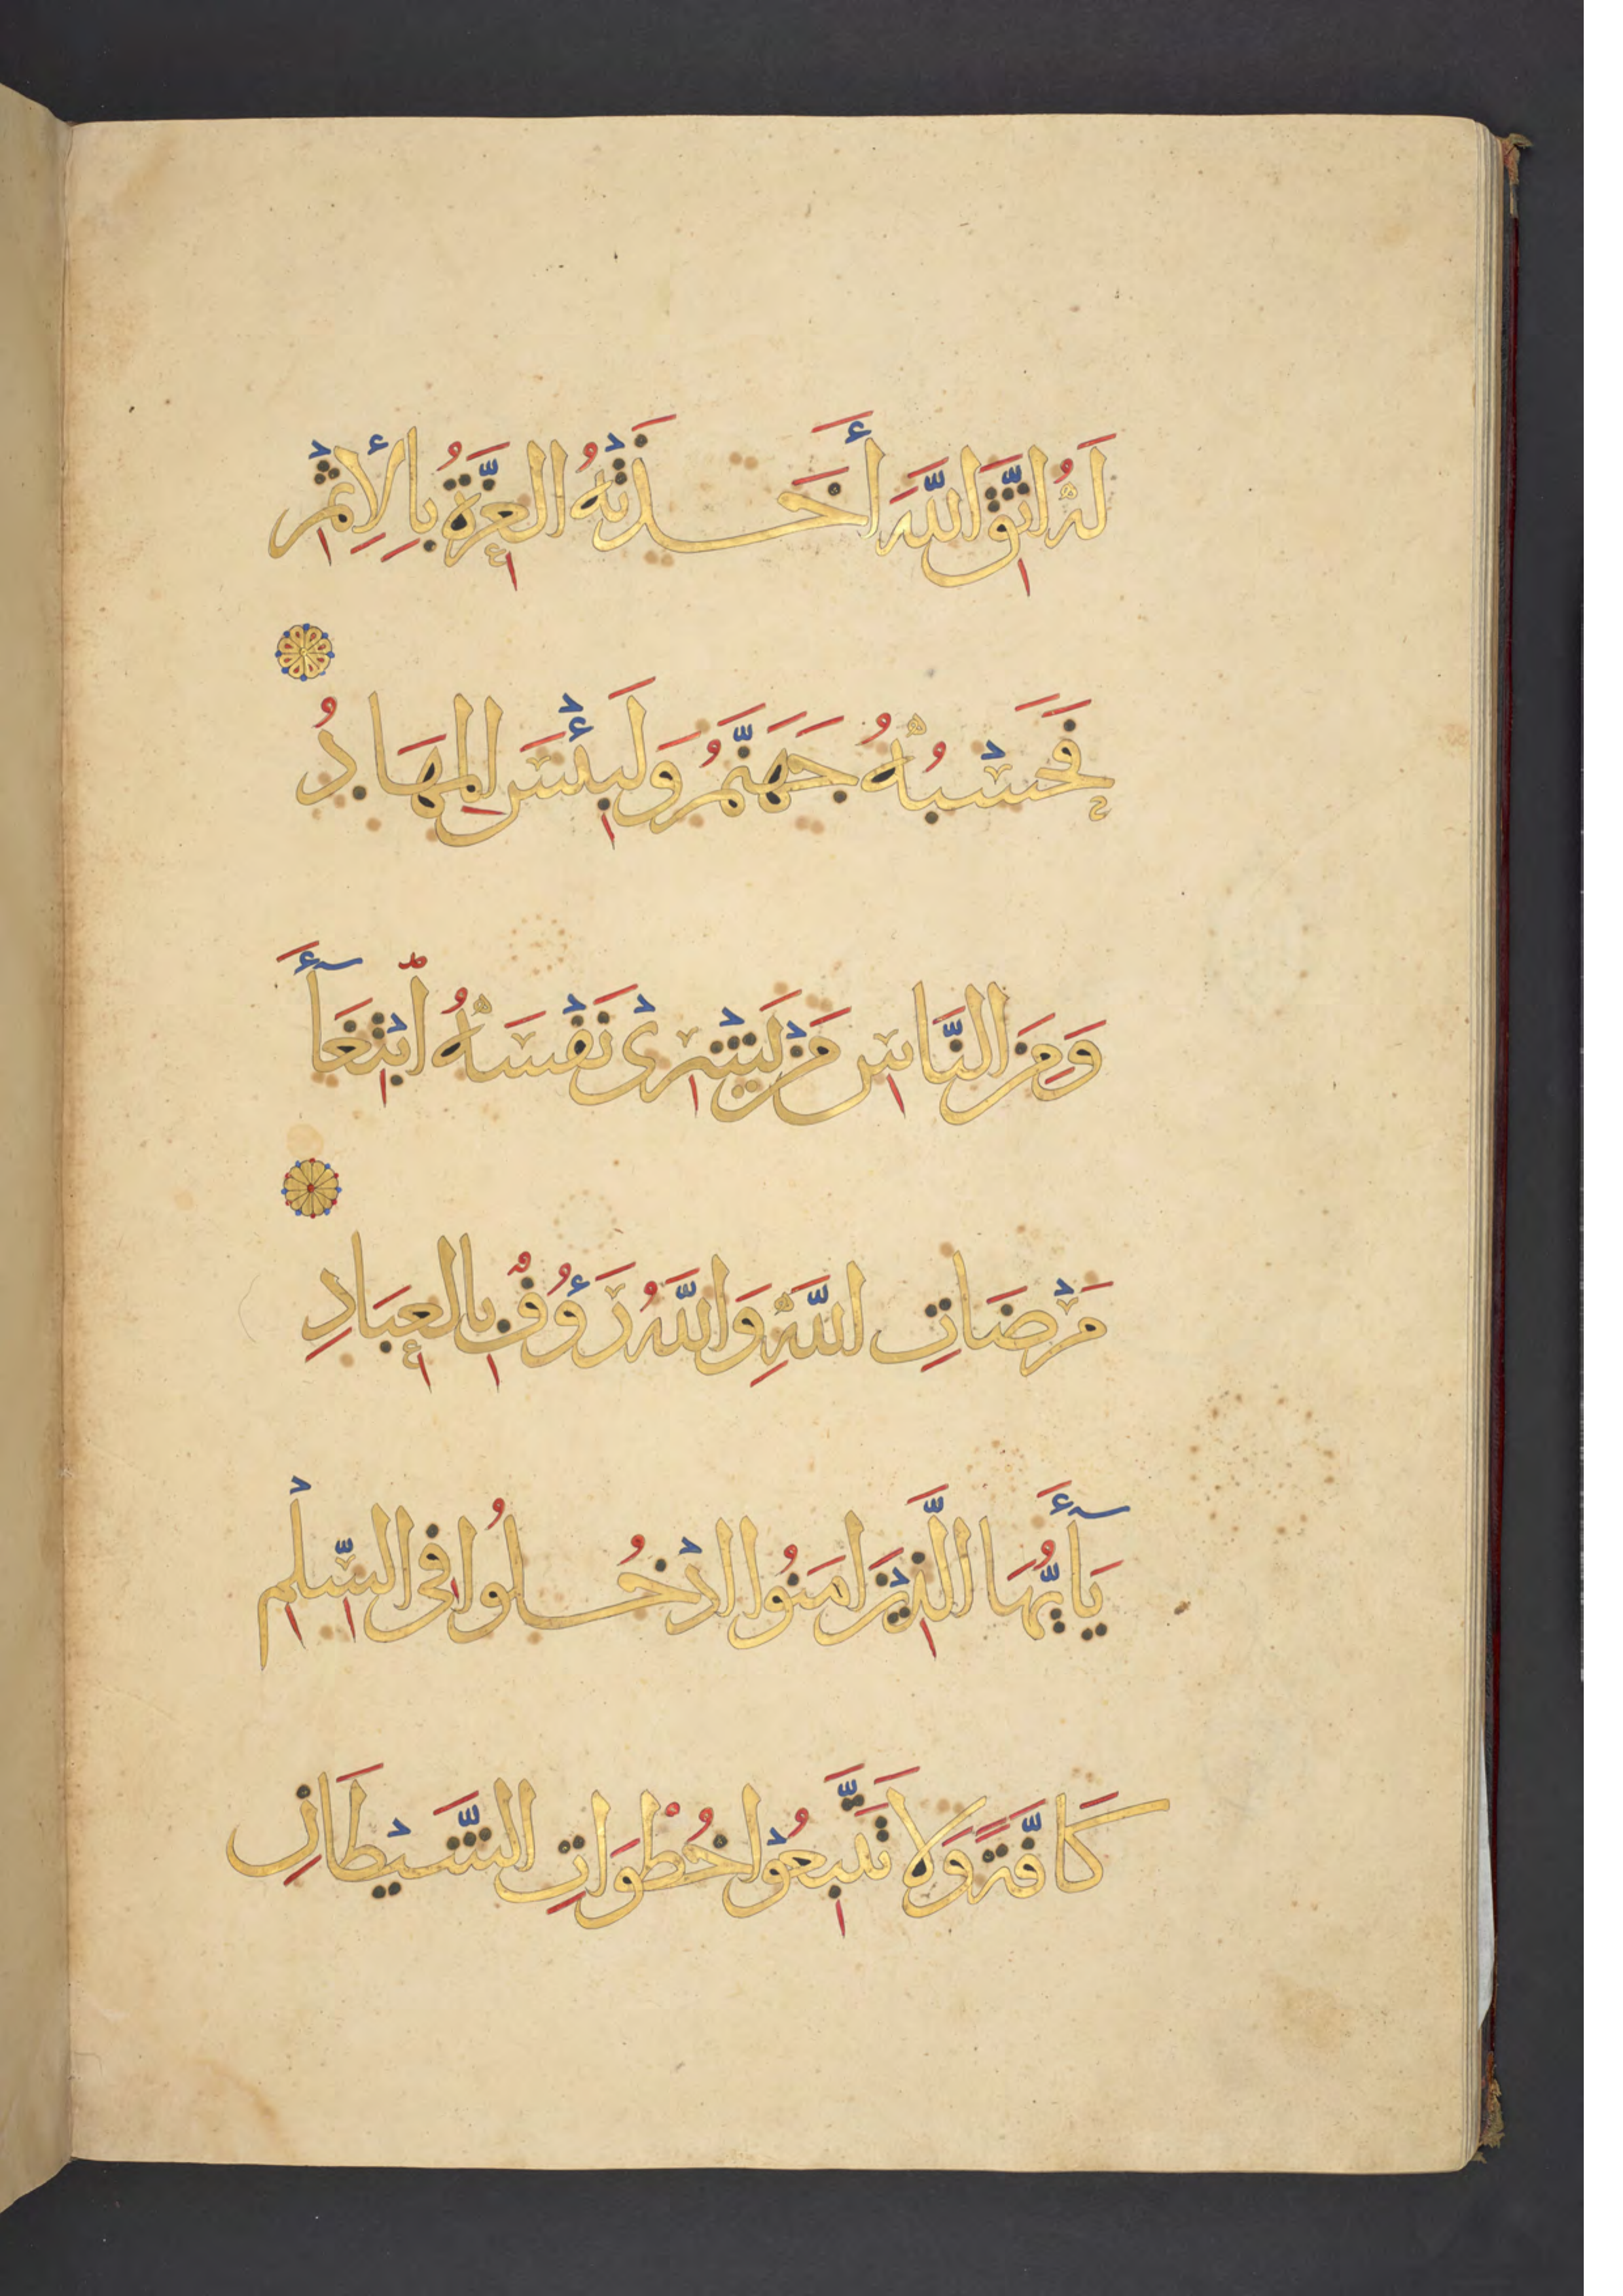 لَهُ اتَّقِ اللَّهَ أَخَذَتْهُ الْعِزَّةُ بِالْإِثْمِ
فَحَسْبُهُ جَهَنَّمُ وَلَبِئْسَ الْمِهَادُ
وَمِنَ النَّاسِ مَنْ يَشْرِى نَفْسَهُ ابْتِغَآءَ
مَرْضَاتِ اللَّهِ وَاللَّهُ رَؤُفٌ بِالْعِبَادِ
يَآأَيُّهَا الَّذِينَ امَنُوا ادْخُلُوا فِى السِّلْمِ
كَافَّةً وَلَا تَتَّبِعُوا خُطُوَاتِ الشَّيْطَانِ